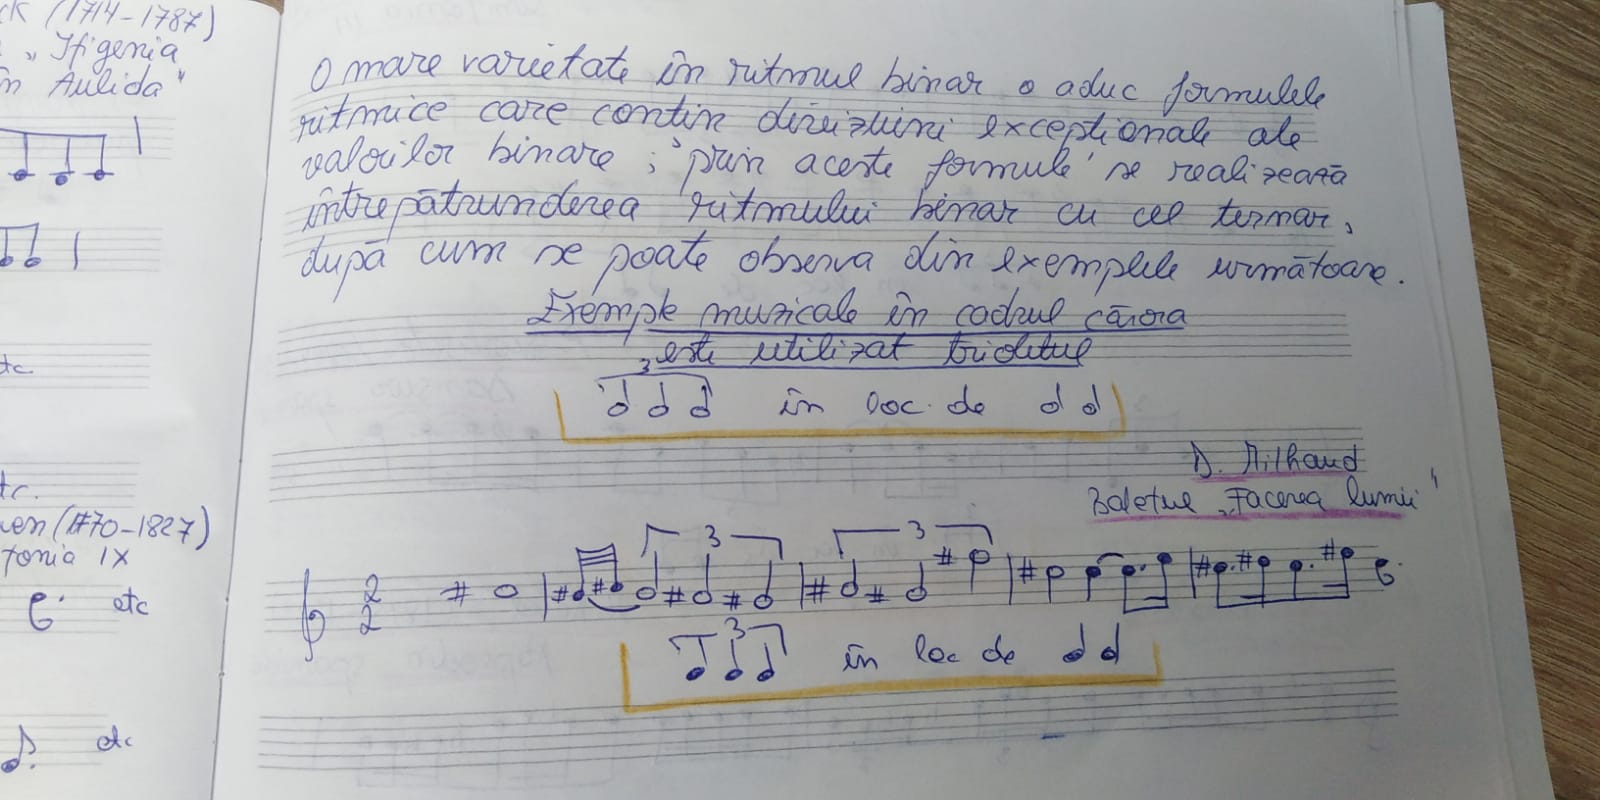 ck (1714-1787)
„Ifigenia
în Aulida"
etc.
etc.
ven (1770-1827)
fonia IX
etc
etc
O mare varietate în ritmul binar o aduc formulele
ritmice care conțin diviziuni excepționale ale
valorilor binare; prin aceste formule se realizează
întrepătrunderea ritmului binar cu cel ternar,
după cum se poate observa din exemplele următoare.
Exemple muzicale în cadrul cărora
este utilizat trioletul
3
în loc de
D. Milhaud
Baletul „Facerea lumii"
3 3
2
2
3
în loc de